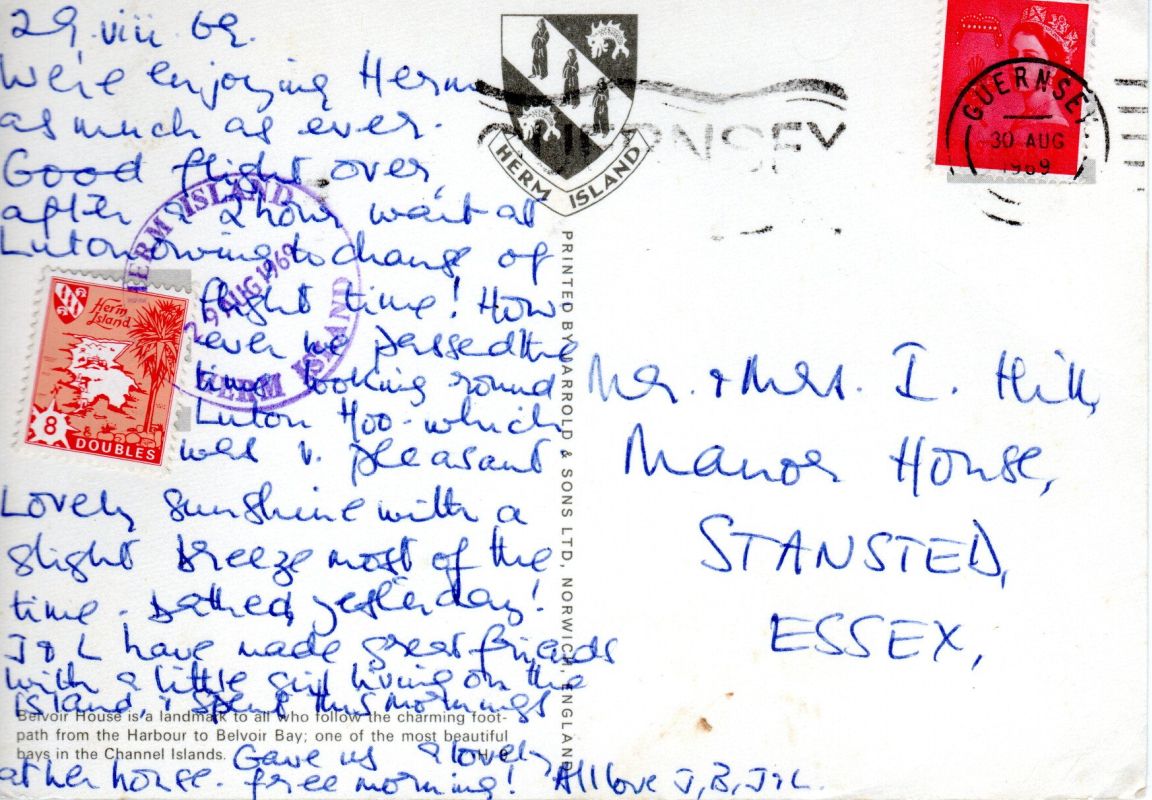 29.viii.69.
We're enjoying Herm
as much as ever.
Good flight over,
after a 2 hour wait at
Luton owing to change of
flight time! How
ever we passed the
time looking round
Luton Hoo - which
was v. pleasant
Lovely sunshine with a
slight breeze most of the
time. Bathed yesterday!
J & L have made great friends
with a little girl living on the
island, & spent this morning
at her house. Gave us a lovely
free morning! All love J, B, J & L.
Belvoir House is a landmark to all who follow the charming foot-
path from the Harbour to Belvoir Bay; one of the most beautiful
bays in the Channel Islands.
HERM ISLAND
29 AUG 1969
HERM ISLAND
Herm
Island
8
DOUBLES
HERM ISLAND
PRINTED BY JARROLD & SONS LTD, NORWICH, ENGLAND
GUERNSEY
GUERNSEY
30 AUG
1969
Mr. & Mrs. I. Hill,
Manor House,
STANSTED,
ESSEX,